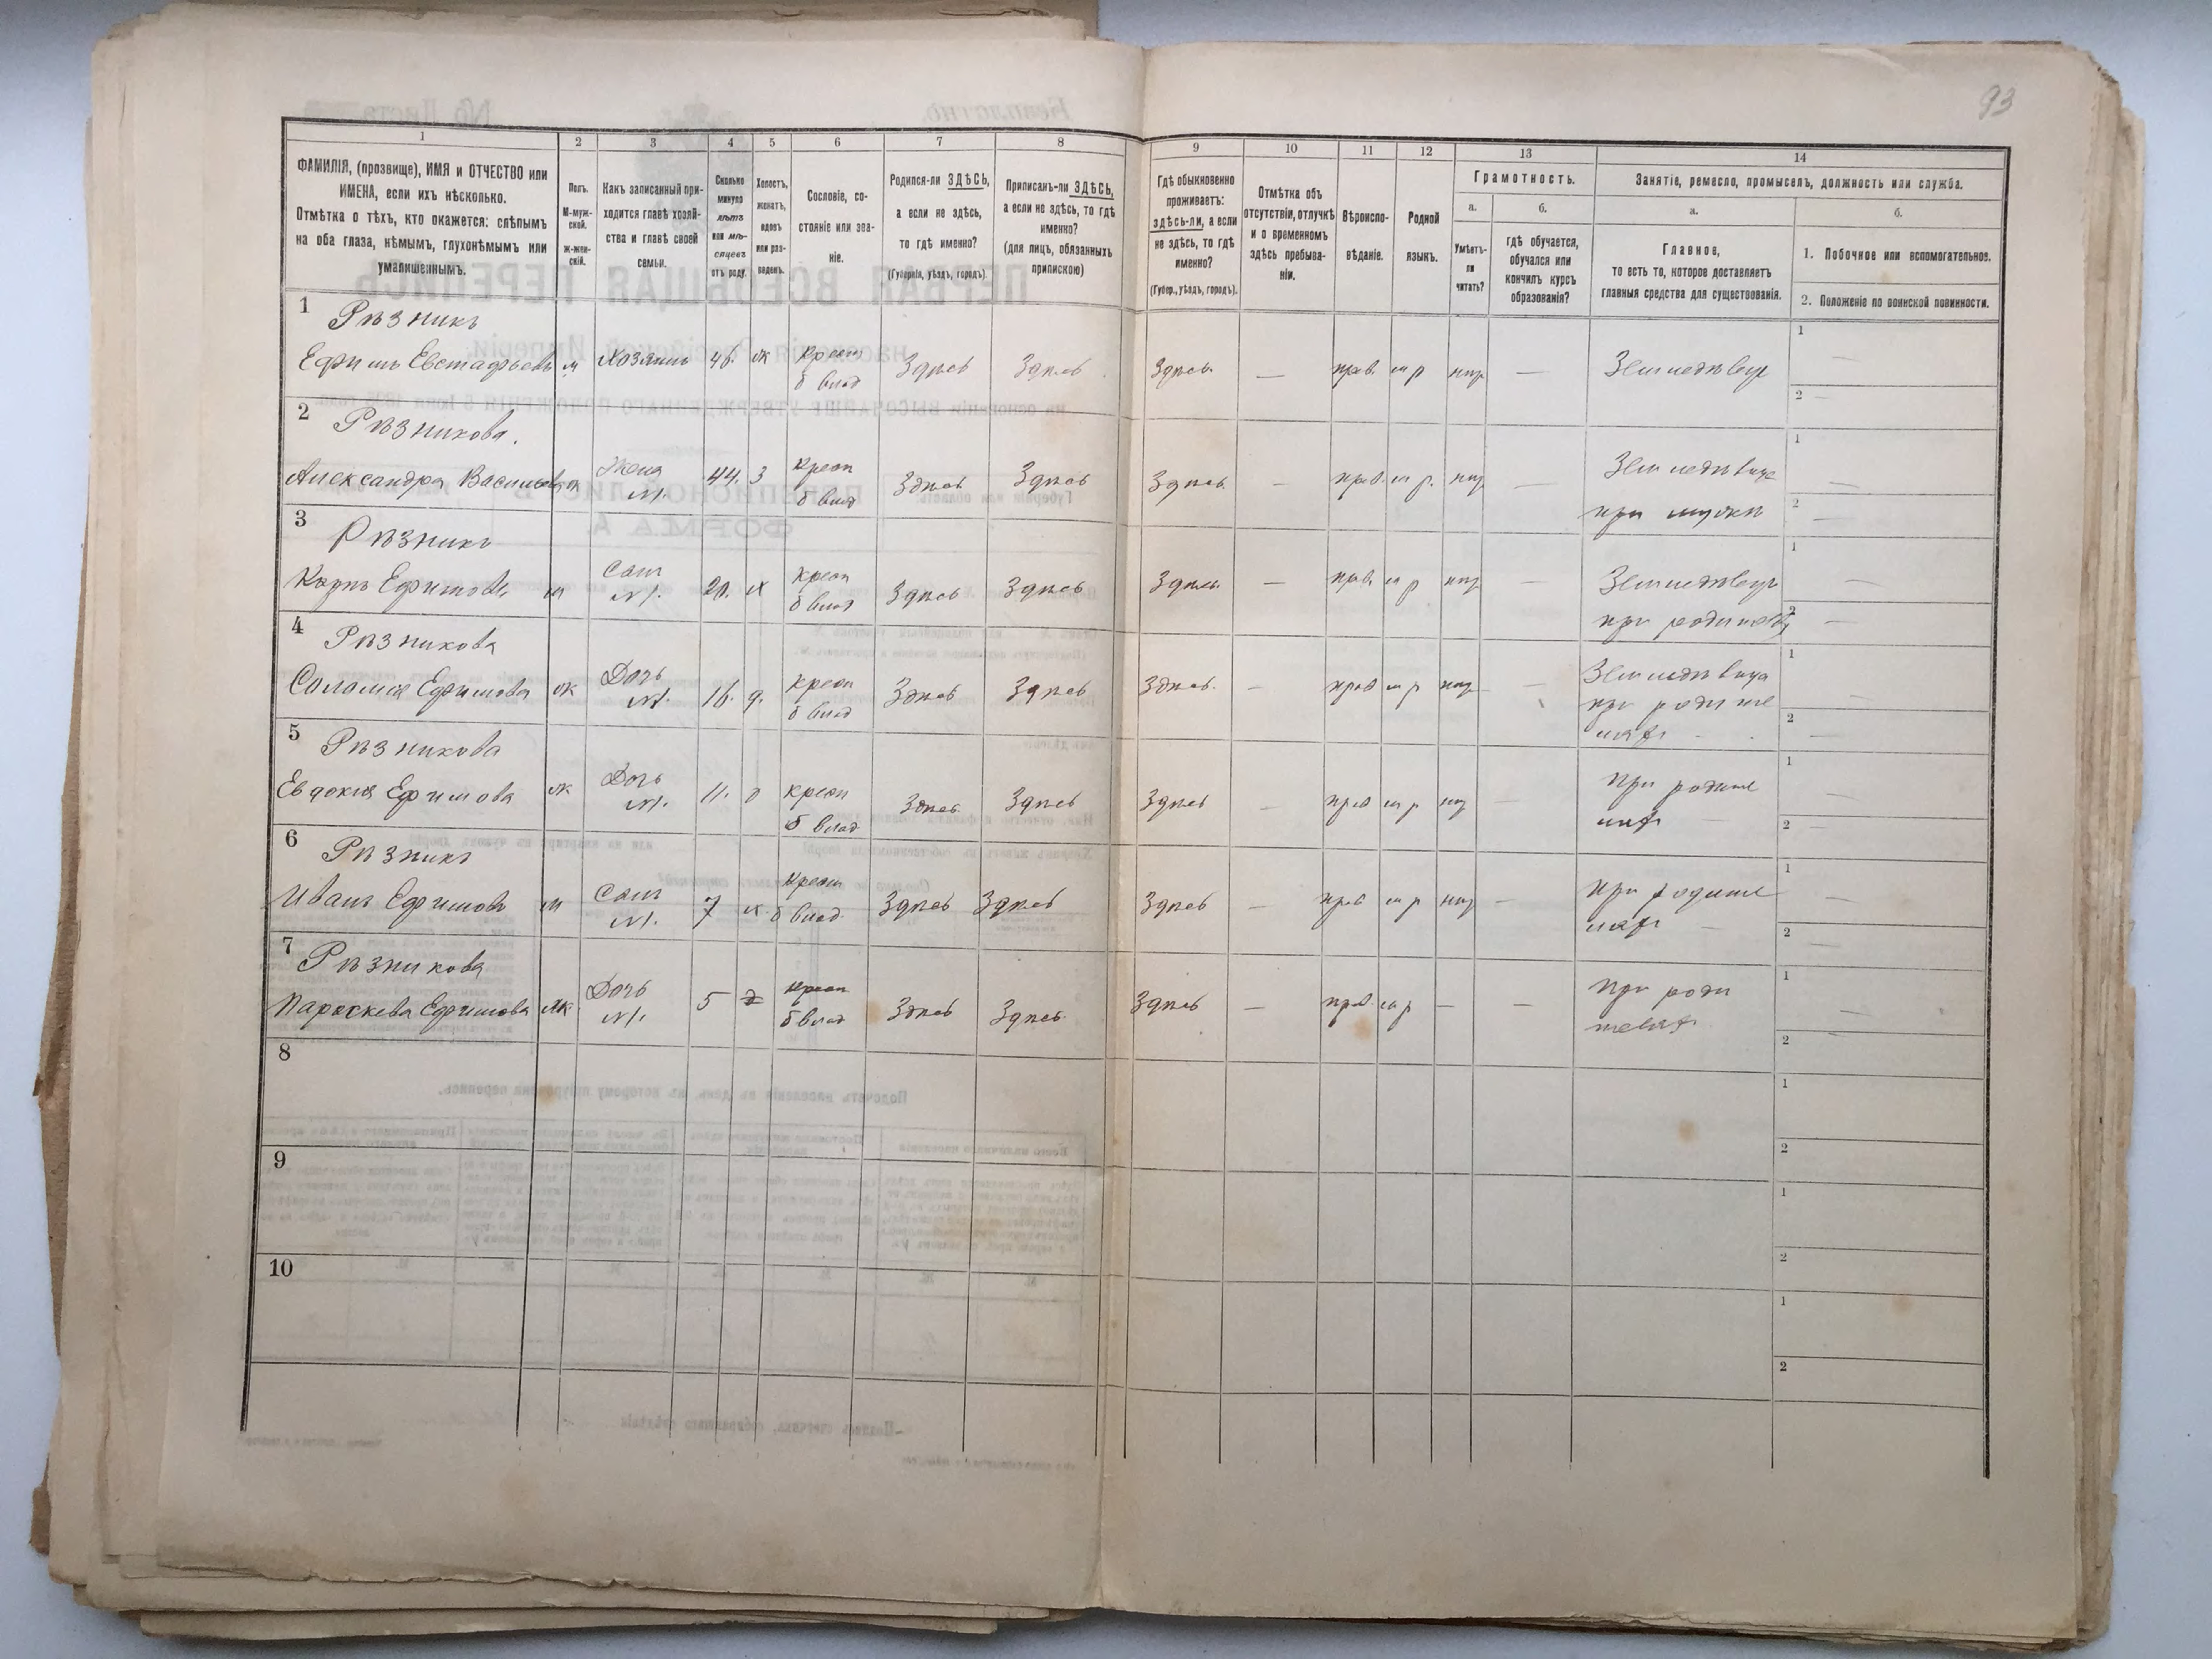 93
1 2 3 4 5 6 7 8 9 10 11 12 13 14
ФАМИЛІЯ, (прозвище), ИМЯ и ОТЧЕСТВО или
ИМЕНА, если ихъ нѣсколько.
Отмѣтка о тѣхъ, кто окажется: слѣпымъ
на оба глаза, нѣмымъ, глухонѣмымъ или
умалишеннымъ.
Полъ.
М-муж-
ской.
Ж-жен-
скій.
Какъ записанный при-
ходится главѣ хозяй-
ства и главѣ своей
семьи.
Сколько
минуло
лѣтъ
или мѣ-
сяцевъ
отъ роду.
Холостъ,
женатъ,
вдовъ
или раз-
веденъ.
Сословіе, со-
стояніе или зва-
ніе.
Родился-ли ЗДѢСЬ,
а если не здѣсь,
то гдѣ именно?
(Губернія, уѣздъ, городъ).
Приписанъ-ли ЗДѢСЬ,
а если не здѣсь, то гдѣ
именно?
(для лицъ, обязанныхъ
припискою)
Гдѣ обыкновенно
проживаетъ:
здѣсь-ли, а если
не здѣсь, то гдѣ
именно?
(Губер., уѣздъ, городъ).
Отмѣтка объ
отсутствіи, отлучкѣ
и о временномъ
здѣсь пребыва-
ніи.
Вѣроиспо-
вѣданіе.
Родной
языкъ.
Грамотность.
а.
б.
Умѣетъ-
ли
читать?
гдѣ обучается,
обучался или
кончилъ курсъ
образованія?
Занятіе, ремесло, промыселъ, должность или служба.
а.
б.
Главное,
то есть то, которое доставляетъ
главныя средства для существованія.
1. Побочное или вспомогательное.
2. Положеніе по воинской повинности.
1 Рѣзникъ
Ефимъ Евстафьевъ м Хозяинъ 46. ж крест Здѣсь Здѣсь Здѣсь — прав. м р нѣт — Земледѣлец 1 —
б влад 2 —
2 Рѣзникова.
Александра Васильева ж Жена 44. з крест Здѣсь Здѣсь Здѣсь — прав. м р. нѣт — Земледѣлица 1 —
N1. б влад при мужѣ 2 —
3 Рѣзникъ
Карпъ Ефимовъ м Сынъ 20. х крест Здѣсь Здѣсь Здѣсь — прав. м р нѣт — Земледѣлец 1 —
N1. б влад при 2 —
4 Рѣзникова
Саломия Ефимова ж Дочь 16. д. крест Здѣсь Здѣсь Здѣсь. — прав м р — Земледѣлица 1 —
N1. б влад при родите 2 —
ляхъ —
5 Рѣзникова
Евдокия Ефимова ж Дочь 11. д крест Здѣсь Здѣсь Здѣсь — прав м р — при родите 1 —
N1. б влад ляхъ 2 —
6 Рѣзникъ
Иванъ Ефимовъ м Сынъ 7 х крест Здѣсь Здѣсь Здѣсь — прав м р — при родите 1 —
N1. б влад. ляхъ 2 —
7 Рѣзникова
Параскева Ефимова ж Дочь 5 д крест Здѣсь Здѣсь Здѣсь — прав. м р — — при роди 1 —
N1. б влад телях 2 —
8 1
2
9 1
2
10 1
2